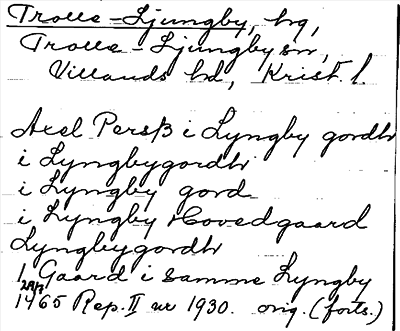 Trolle-Ljungby, hg,
Trolle-Ljungby sn,
Villands hd, Krist. l.
Axel Persß i Lyngby gordh
i Lyngbygordh
i Lyngby gord
i Lyngby Hovedgaard
Lyngbygordh
1 Gaard i samme Lyngby
29/3
1465 Rep. II nr 1930. orig. (forts.)